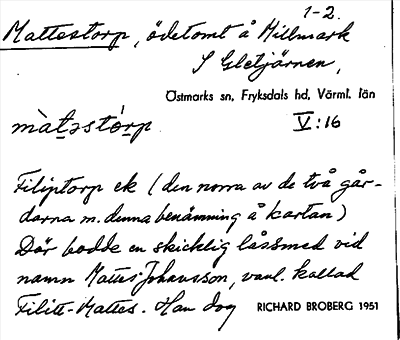 1-2.
Mattestorp, ödetomt å Hillmark
S Gletjärnen,
Östmarks sn, Fryksdals hd, Värml. län
màt̬əstó̀rp V:16
Filiptorp ek (den norra av de två går-
darna m. denna benämning å kartan)
Där bodde en skicklig låssmed vid
namn Mattes Johansson, vanl. kallad
Filitt-Mattes. Han dog
RICHARD BROBERG 1951